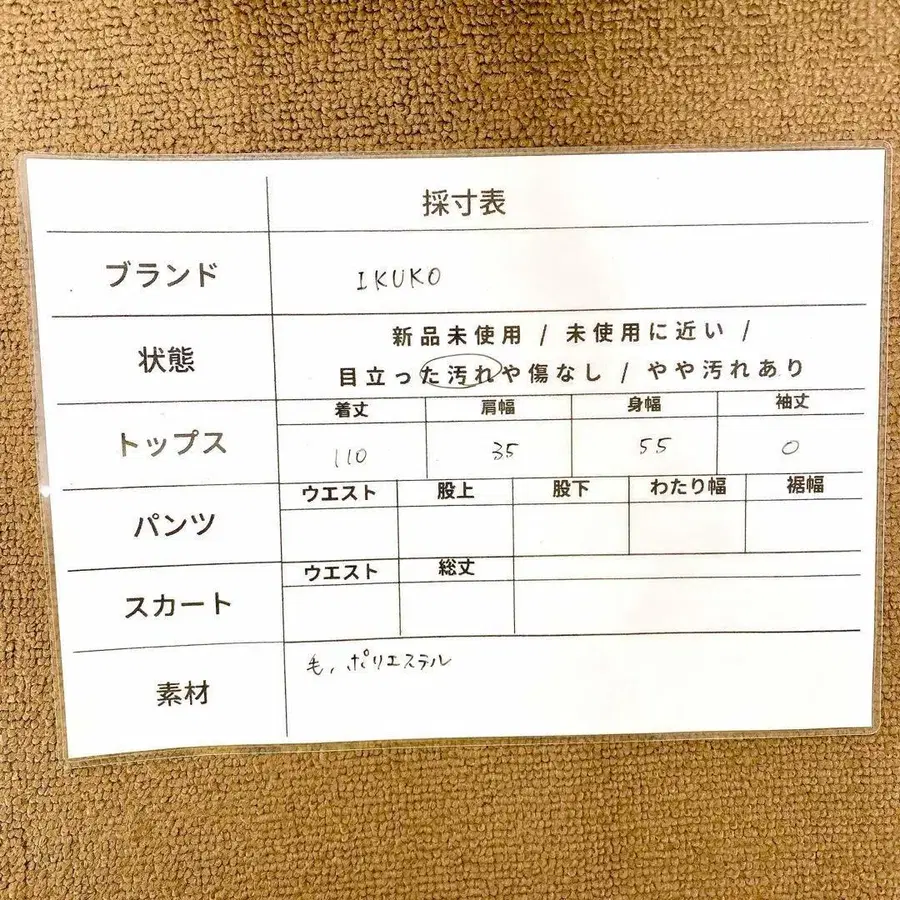 採寸表
ブランド
IKUKO
状態
新品未使用 / 未使用に近い /
目立った汚れや傷なし / やや汚れあり
トップス
着丈 肩幅 身幅 袖丈
110 35 55 0
パンツ
ウエスト 股上 股下 わたり幅 裾幅
スカート
ウエスト 総丈
素材
毛, ポリエステル